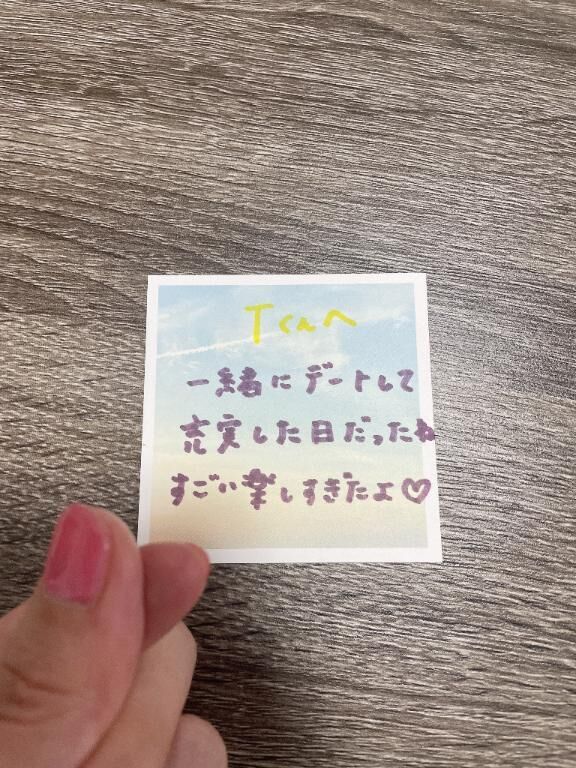 Tくんへ
一緒にデートして
充実した日だったね
すごい楽しすぎだよ♡